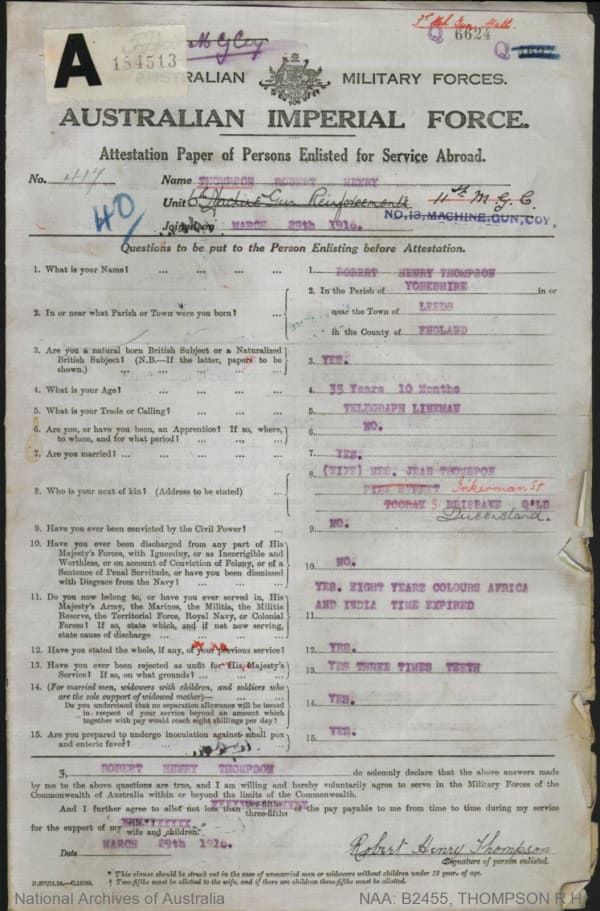 3rd Mch Gun Batt.
Q 6624
Q
M G Coy
A
184513
AUSTRALIAN MILITARY FORCES.
AUSTRALIAN IMPERIAL FORCE.
Attestation Paper of Persons Enlisted for Service Abroad.
No. 417 Name THOMPSON ROBERT HENRY
40
Unit 6th Machine Gun Reinforcements 11th M.G.C.
NO,13,MACHINE,GUN,COY.
Joined on MARCH 29th 1916.
Questions to be put to the Person Enlisting before Attestation.
1. What is your Name? ... ... ... 1. ROBERT HENRY THOMPSON
2. In or near what Parish or Town were you born? ... 2. In the Parish of YORKSHIRE in or
near the Town of LEEDS
in the County of ENGLAND
3. Are you a natural born British Subject or a Naturalized
British Subject? (N.B.—If the latter, papers to be
shown.) ... ... ... ... 3. YES.
4. What is your Age? ... ... ... 4. 35 Years 10 Months
5. What is your Trade or Calling? ... ... 5. TELEGRAPH LINEMAN
6. Are you, or have you been, an Apprentice? If so, where,
to whom, and for what period? ... ... ... 6. NO.
7. Are you married? ... ... ... ... 7. YES.
8. Who is your next of kin? (Address to be stated) ... 8. (WIFE) MRS. JEAN THOMPSON
STREET Inkerman St
BRISBANE Q'LD
Queensland.
9. Have you ever been convicted by the Civil Power? ... 9. NO.
10. Have you ever been discharged from any part of His
Majesty's Forces, with Ignominy, or as Incorrigible and
Worthless, or on account of Conviction of Felony, or of a
Sentence of Penal Servitude, or have you been dismissed
with Disgrace from the Navy? ... ... ... 10. NO.
11. Do you now belong to, or have you ever served in, His
Majesty's Army, the Marines, the Militia, the Militia
Reserve, the Territorial Force, Royal Navy, or Colonial
Forces? If so, state which, and if not now serving,
state cause of discharge ... ... ... 11. YES. EIGHT YEARS COLOURS AFRICA
AND INDIA TIME EXPIRED
12. Have you stated the whole, if any, of your previous service? 12. YES.
13. Have you ever been rejected as unfit for His Majesty's
Service? If so, on what grounds? ... ... 13. YES THREE TIMES TEETH
14. (For married men, widowers with children, and soldiers who
are the sole support of widowed mother)—
Do you understand that no separation allowance will be issued
in respect of your service beyond an amount which
together with pay would reach eight shillings per day? 14. YES.
15. Are you prepared to undergo inoculation against small pox
and enteric fever? ... ... 15. YES.
I, ROBERT HENRY THOMPSON do solemnly declare that the above answers made
by me to the above questions are true, and I am willing and hereby voluntarily agree to serve in the Military Forces of the
Commonwealth of Australia within or beyond the limits of the Commonwealth.
And I further agree to allot not less than two-fifths three-fifths of the pay payable to me from time to time during my service
for the support of my wife and children.
Date MARCH 29th 1916. Robert Henry Thompson
Signature of person enlisted.
* This clause should be struck out in the case of unmarried men or widowers without children under 18 years of age.
† Two-fifths must be allotted to the wife, and if there are children three-fifths must be allotted.
National Archives of Australia NAA: B2455, THOMPSON R H